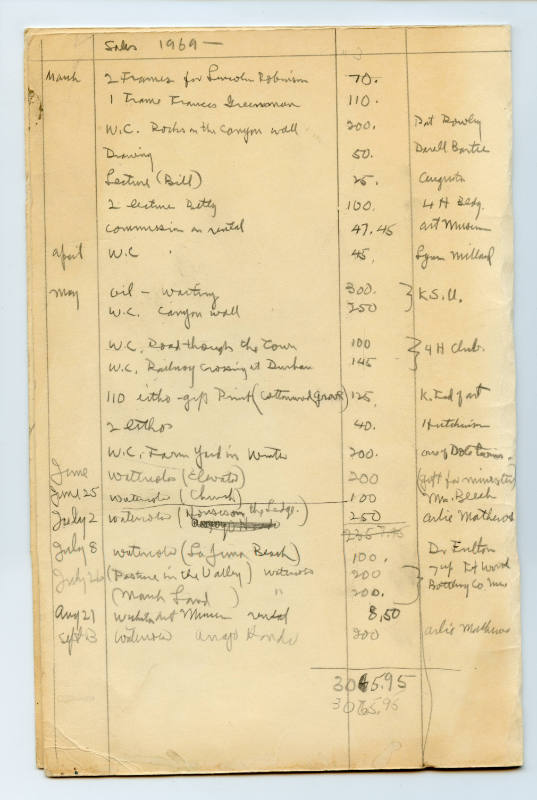 Sales 1969 —
March 2 Frames for Lincoln Robinson 70.
1 Frame Frances Greenman 110.
W.C. Rocks on the Canyon wall 200. Pat Rowley
Drawing 50. Darell Bartee
Lecture (Bill) 25. Augusta
2 lecture Betty 100. 4 H Bldg.
Commission on rental 47.45 art Museum
April W.C 45. Lynn Millard
May oil - Waiting 300. } K.S.U.
W.C. Canyon wall 250
W.C. Road through the Town 100 } 4 H Club.
W.C. Railway Crossing at Durham 145
110 litho-gift Print (Cottonwood Grove) 125.
2 lithos 40. Hutchinson
W.C. Farm Yard in Winter 200.
June Watercolor (Elevator) 200 (gift for minister)
June 25 watercolor (Church) 100 Mrs. Beach
July 2 watercolor (Houses on the Ledge. 250 Arlie Mathews
July 8 watercolor (La Jima Beach) 100. Dr Fulton
July 26 (Pasture in the Valley) watercolor 200 } 7 up
(Marsh Land) " 200. Bottling Co.
Aug 21 Wichita Art Museum rental 8.50
Sept 3 watercolor Arroyo Hondo 200 Arlie Mathews
3065.95
3065.95